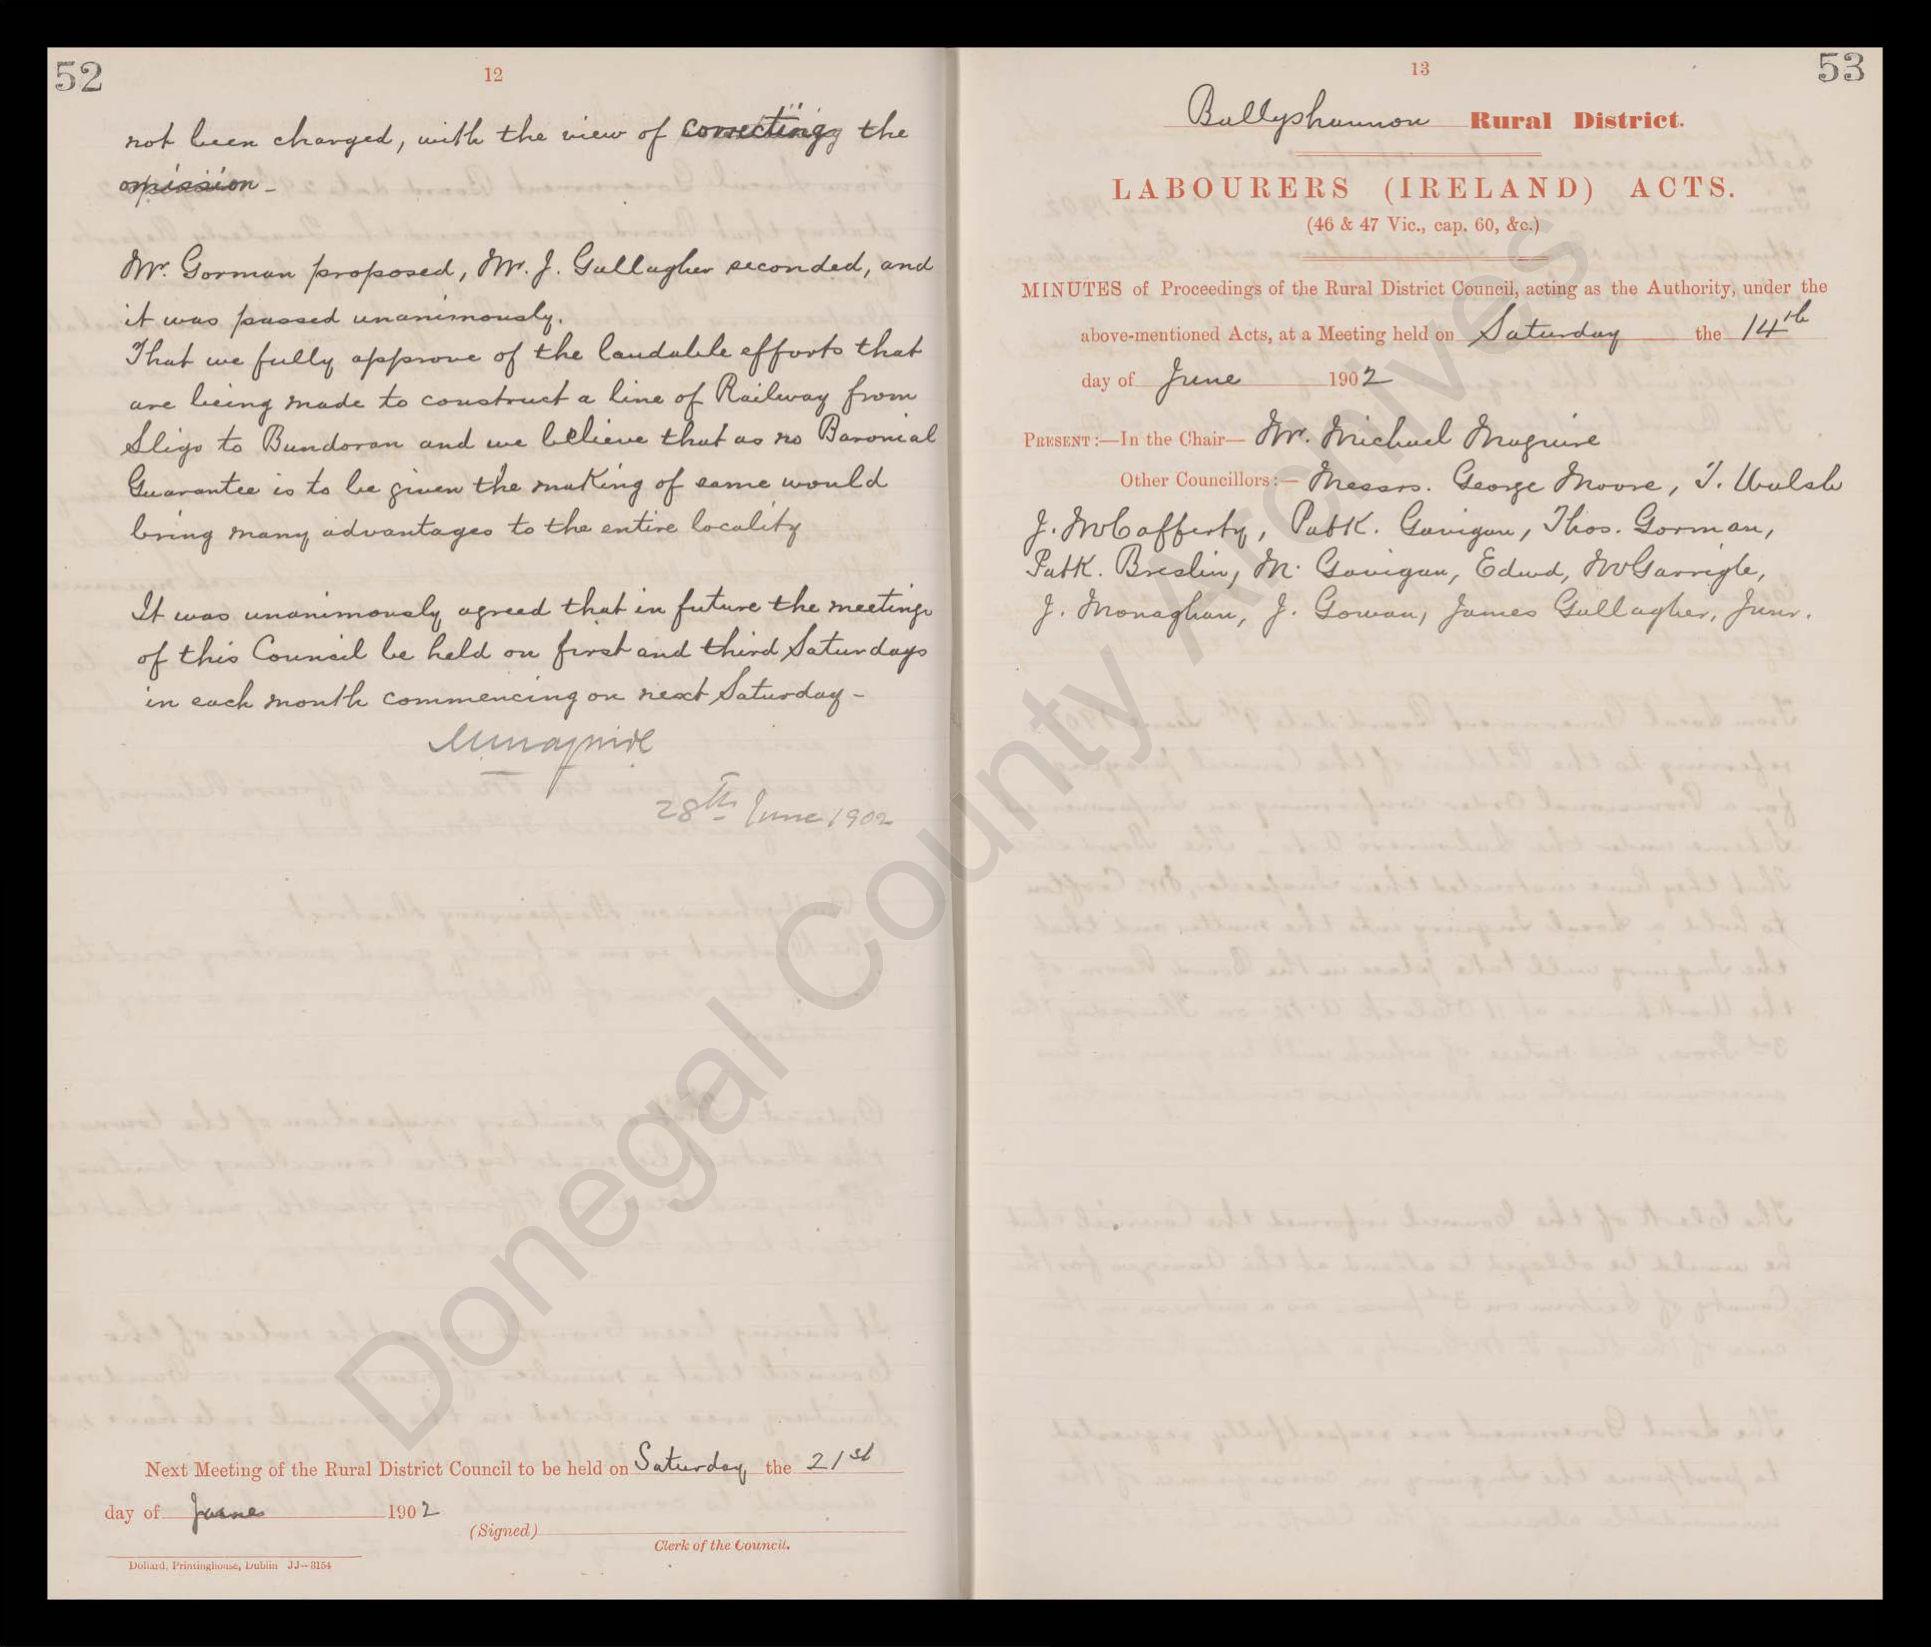 52
12
not been charged, with the view of correcting the
omission -
Mr. Gorman proposed, Mr. J. Gallagher seconded, and
it was passed unanimously.
That we fully approve of the laudable efforts that
are being made to construct a line of Railway from
Sligo to Bundoran and we believe that as no Baronial
Guarantee is to be given the making of same would
bring many advantages to the entire locality
It was unanimously agreed that in future the meetings
of this Council be held on first and third Saturdays
in each month commencing on next Saturday -
MMaguire
28th June 1902
Next Meeting of the Rural District Council to be held on Saturday the 21st
day of June 1902
(Signed)
Clerk of the Council.
Dollard, Printinghouse, Dublin JJ-3154
53
13
Ballyshannon Rural District.
LABOURERS (IRELAND) ACTS.
(46 & 47 Vic., cap. 60, &c.)
MINUTES of Proceedings of the Rural District Council, acting as the Authority, under the
above-mentioned Acts, at a Meeting held on Saturday the 14th
day of June 1902
PRESENT:—In the Chair— Mr. Michael Maguire
Other Councillors:— Messrs. George Moore, T. Walsh
J. McCafferty, Patk. Gavigan, Thos. Gorman,
Patk. Breslin, M. Gavigan, Edwd, McGarrigle,
J. Monaghan, J. Gowan, James Gallagher, Junr.
Donegal County Archives